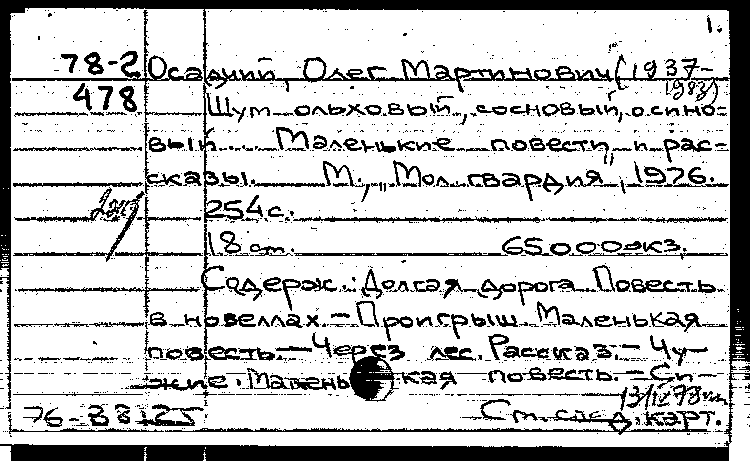 1.
78-2 Осадчий, Олег Мартинович (1937-
1983)
478 Шум ольховый, сосновый, осино-
вый... Маленькие повести и рас-
сказы. М., „Мол. гвардия", 1976.
2экз
254 с.
18 см. 65000 экз.
Содерж.: Долгая дорога Повесть
в новеллах. – Проигрыш. Маленькая
повесть. – Через лес. Рассказ. – Чу-
жие. Маленькая повесть. – Си-
13/IX 78
76-33125 См. след. карт.